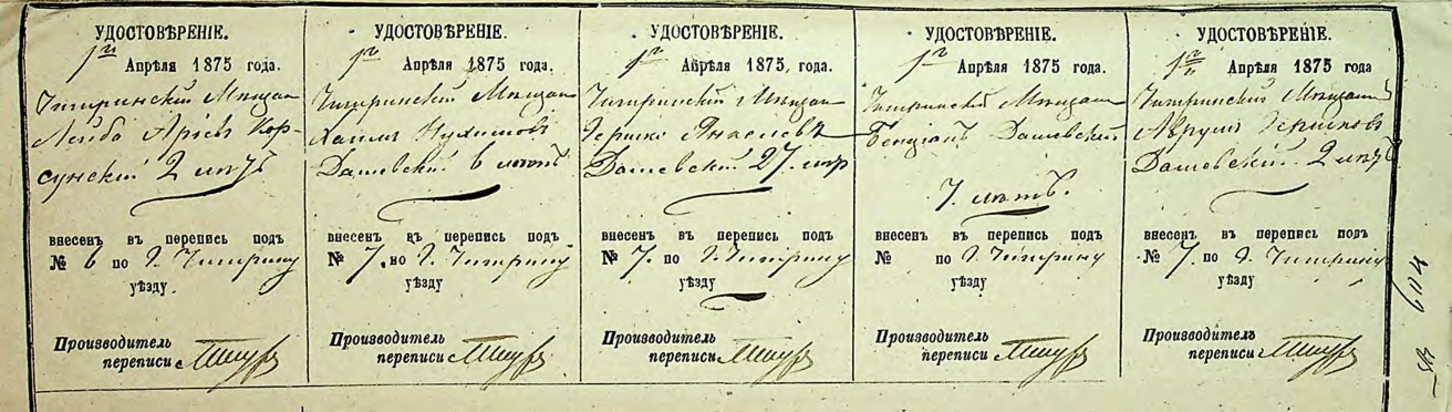 УДОСТОВѢРЕНІЕ.
1го Апрѣля 1875 года.
Чигиринскій Мѣщан
Лейба Арьевъ Кор-
сунскій 2 лѣтъ
внесенъ въ перепись подъ
№ 6 по г. Чигирину
уѣзду
Производитель
переписи
УДОСТОВѢРЕНІЕ.
1го Апрѣля 1875 года.
Чигиринскій Мѣщан
Хаимъ Нухимовъ
Дашевскій 6 лѣтъ
внесенъ въ перепись подъ
№ 7. по г. Чигирину
уѣзду
Производитель
переписи
УДОСТОВѢРЕНІЕ.
1го Апрѣля 1875, года.
Чигиринскій Мѣщан
Гершко Янкелевъ
Дашевскій 27. лѣт
внесенъ въ перепись подъ
№ 7. по г. Чигирину
уѣзду
Производитель
переписи
УДОСТОВѢРЕНІЕ.
1го Апрѣля 1875 года.
Чигиринскій Мѣщан
Бенціонъ Дашевскій
7. лѣтъ.
внесенъ въ перепись подъ
№ по г. Чигирину
уѣзду
Производитель
переписи
УДОСТОВѢРЕНІЕ.
1го Апрѣля 1875 года
Чигиринскій Мѣщан
Аврумъ Гершковъ
Дашевскій 2 лѣтъ
внесенъ въ перепись подъ
№ 7. по г. Чигирину
уѣзду
Производитель
переписи